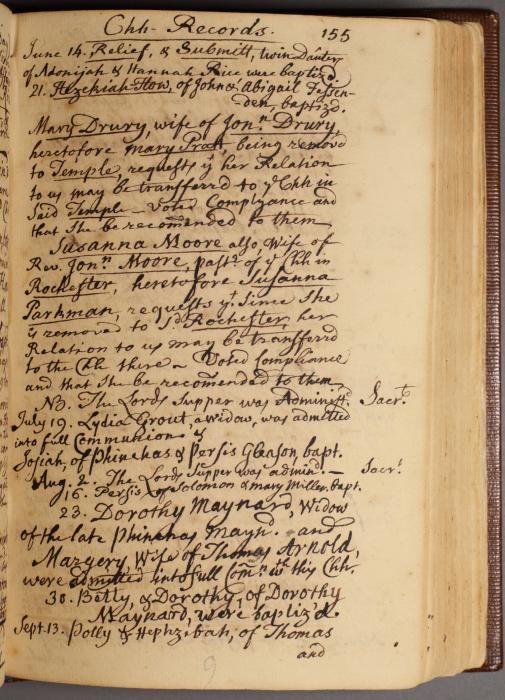 Chh Records. 155
June 14. Relief, & Submitt, twin Dauters
of Adonijah & Hannah Rice were baptizd
21. Hezekiah How, of John & Abigail Fessen-
den, baptizd.
Mary Drury, wife of Jonn Drury,
heretofore Mary Pratt, being remov'd
to Temple, requests yt her Relation
to us may be transferrd to ye Chh in
said Temple - Voted Complyance and
that She be recomended to them
Susanna Moore also, Wife of
Rev. Jonn Moore, pastr. of ye Chh in
Rochester, heretofore Susanna
Parkman, requests yt. Since She
is removed to sd Rochester, her
Relation to us may be transferrd
to the Chh there - Voted Compliance
and that She be recomended to them.
NB. The Lords Supper was Administd. Sacrt.
July 19. Lydia Grout, a widow, was admitted
into full Communion &
Josiah, of Phinehas & Persis Gleason, bapt.
Aug. 2. The Lords Supper was adminid. — Sacrt.
16. Persis of Solomon & Mary Miller, bapt.
23. Dorothy Maynard, Widow
of the late Phinehas Maynd. and
Margery, Wife of Thomas Arnold,
were admitted into full Comn. wth this Chh.
30. Betty, & Dorothy, of Dorothy
Maynard, were baptiz'd.
Sept. 13. Polly & Hephzibah, of Thomas
and